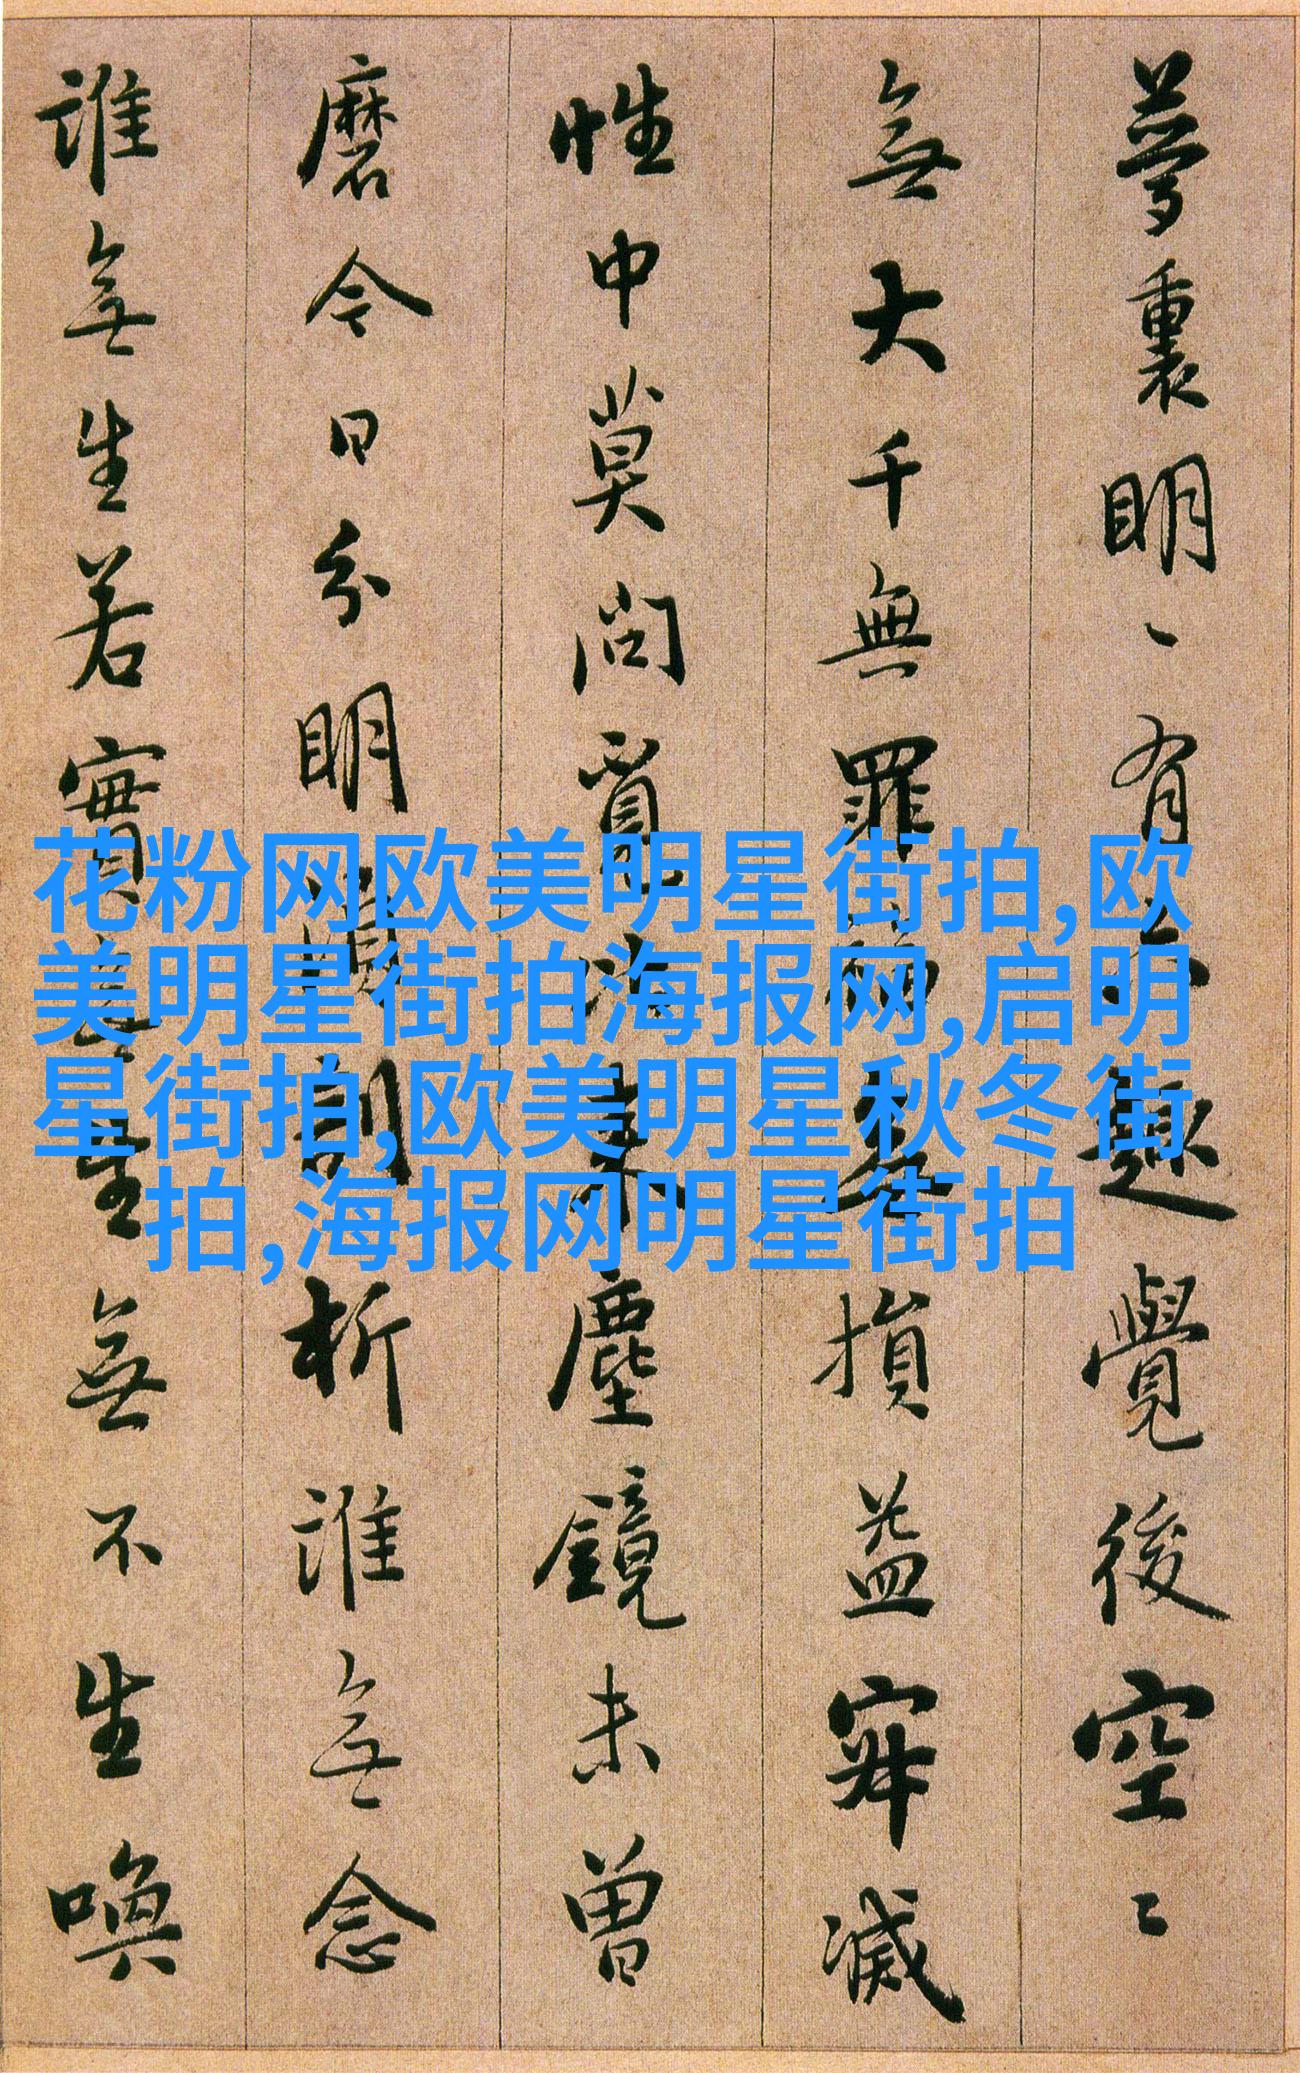 夢裏明〻有六趣覺後空〻
無大千無罪福無損益寂滅
性中莫問覓比来塵鏡未曾
磨今日分明須剖析誰無念
誰無生若實無生無不生喚
花粉网欧美明星街拍,欧
美明星街拍海报网,启明
星街拍,欧美明星秋冬街
拍,海报网明星街拍